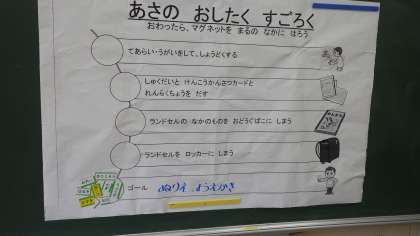 あさの おしたく すごろく
おわったら、マグネットを まるの なかに はろう
てあらい・うがいをして、しょうどくする
しゅくだいと けんこうかんさつカードと
れんらくちょうを だす
ランドセルの なかのものを おどうぐばこに しまう
ランドセルを ロッカーに しまう
ゴール ぬりえ、ようえかき